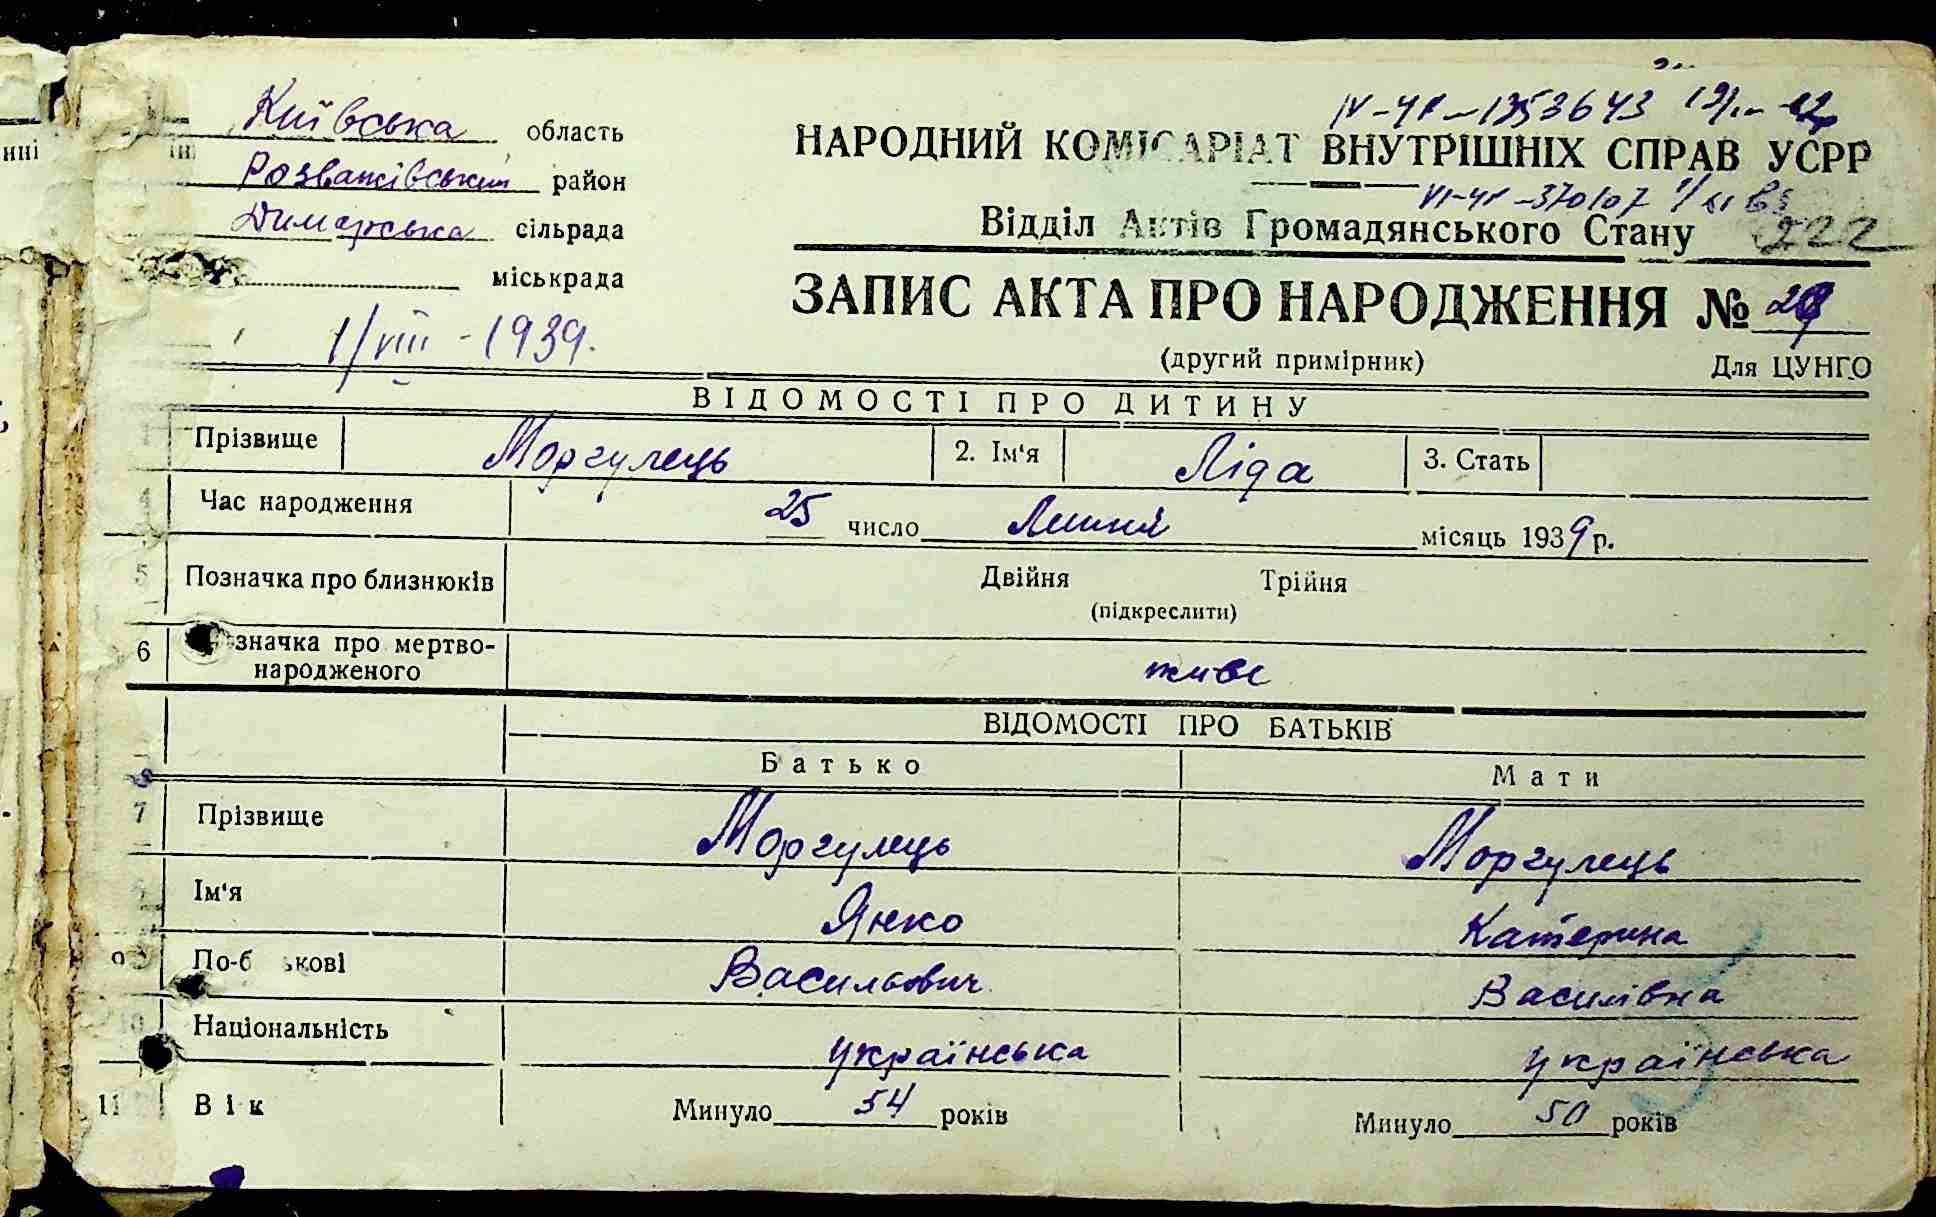 Київська область
Розважівський район
Димарська сільрада
міськрада
1/VIII - 1939.
IV-ЧР-1353643
НАРОДНИЙ КОМІСАРІАТ ВНУТРІШНІХ СПРАВ УСРР
VI-ЧР-370107
Відділ Актів Громадянського Стану 222
ЗАПИС АКТА ПРО НАРОДЖЕННЯ №
(другий примірник) Для ЦУНГО
ВІДОМОСТІ ПРО ДИТИНУ
Прізвище Моргулець 2. Ім'я Ліда 3. Стать
Час народження 25 число Липня місяць 1939 р.
5 Позначка про близнюків Двійня Трійня
(підкреслити)
6 значка про мертво-
народженого живе
ВІДОМОСТІ ПРО БАТЬКІВ
Батько Мати
7 Прізвище Моргулець Моргулець
Ім'я Янко Катерина
По-б кові Васильович Василівна
10 Національність українська українська
11 Вік Минуло 54 років Минуло 50 років